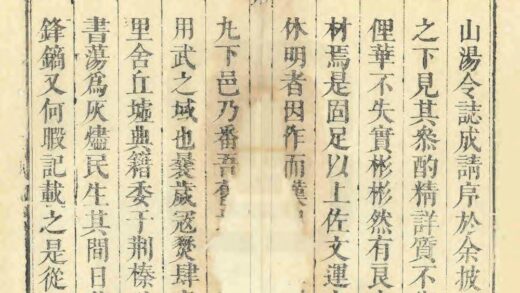 山湯令誌成請序於余披
之下見其叅酌精詳質不
俚華不失實彬彬然有良
材焉是固足以上佐文運
休明者因作而
九下邑乃番吾舊
用武之域也曩歲寇焚肆
里舍丘墟典籍委于荆榛
書蕩爲灰燼民生其間日
鋒鏑又何暇記載之是從